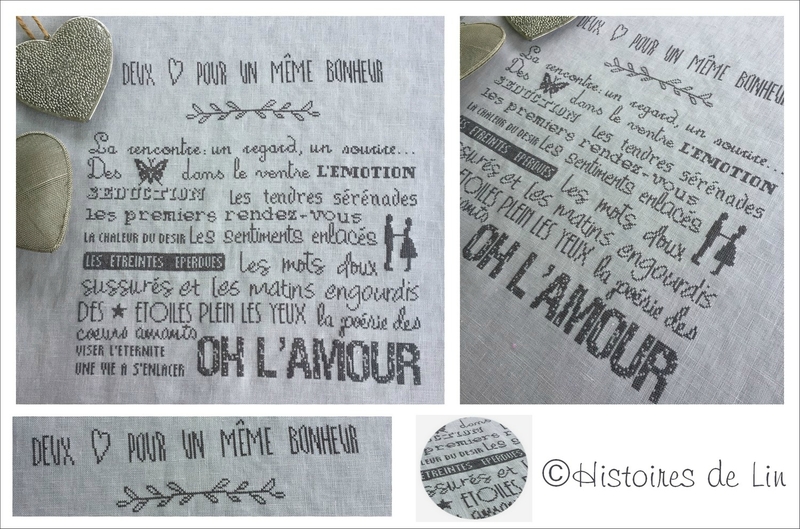 DEUX ♡ POUR UN MÊME BONHEUR
La rencontre: un regard, un sourire...
Des dans le ventre L'EMOTION
SEDUCTION les tendres sérénades
les premiers rendez-vous
LA CHALEUR DU DESIR Les sentiments enlacés
LES ETREINTES EPERDUES les mots doux
sussurés et les matins engourdis
DES ★ ETOILES PLEIN LES YEUX la poésie des
coeurs amants
VISER L'ETERNITE
UNE VIE A S'ENLACER OH L'AMOUR
DEUX ♡ POUR UN MÊME BONHEUR
La rencontre: un regard, un sourire...
Des dans le ventre L'EMOTION
SEDUCTION les tendres sérénades
les premiers rendez-vous
LA CHALEUR DU DESIR Les sentiments enlacés
LES ETREINTES EPERDUES les mots doux
sussurés et les matins engourdis
ETOILES PLEIN LES YEUX la poésie des
amants
OH L'AMOUR
DEUX ♡ POUR UN MÊME BONHEUR
©Histoires de Lin